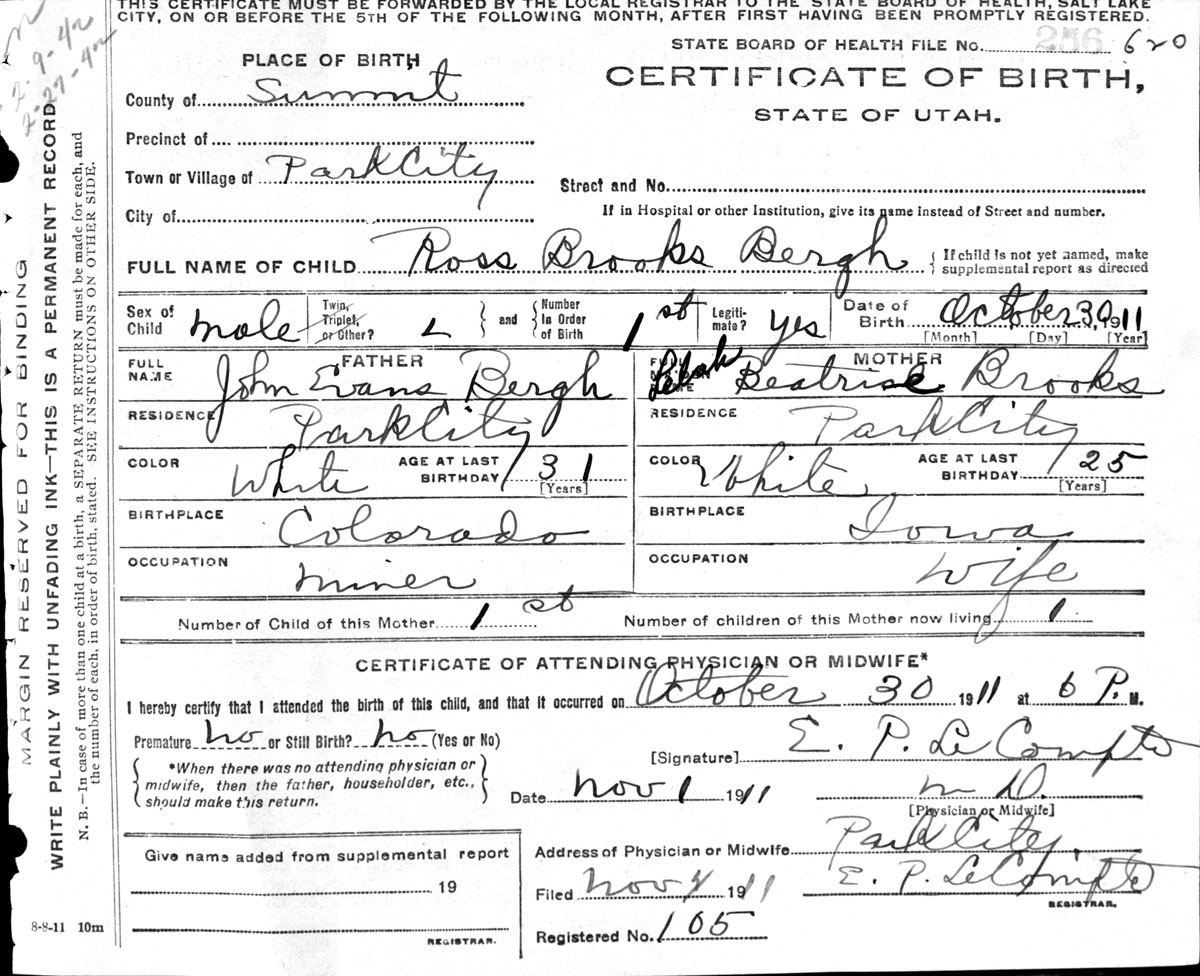 THIS CERTIFICATE MUST BE FORWARDED BY THE LOCAL REGISTRAR TO THE STATE BOARD OF HEALTH, SALT LAKE
CITY, ON OR BEFORE THE 5TH OF THE FOLLOWING MONTH, AFTER FIRST HAVING BEEN PROMPTLY REGISTERED.
2-9-42
2-27-42
STATE BOARD OF HEALTH FILE No. 256 620
PLACE OF BIRTH
CERTIFICATE OF BIRTH,
STATE OF UTAH.
County of Summit
Precinct of
Town or Village of Park City
Street and No.
City of
If in Hospital or other Institution, give its name instead of Street and number.
FULL NAME OF CHILD Ross Brooks Bergh
If child is not yet named, make
supplemental report as directed
Sex of Child male
Twin, Triplet, or Other?
and
Number In Order of Birth 1st
Legiti-mate? yes
Date of Birth October 30, 1911
[Month] [Day] [Year]
FATHER
FULL NAME John Evans Bergh
RESIDENCE Park City
COLOR White
AGE AT LAST BIRTHDAY 31
[Years]
BIRTHPLACE Colorado
OCCUPATION miner
MOTHER
Beatrice Brooks
RESIDENCE Park City
COLOR White
AGE AT LAST BIRTHDAY 25
[Years]
BIRTHPLACE Iowa
OCCUPATION Wife
Number of Child of this Mother 1st
Number of children of this Mother now living 1
CERTIFICATE OF ATTENDING PHYSICIAN OR MIDWIFE*
I hereby certify that I attended the birth of this child, and that it occurred on October 30 1911 at 6 P. M.
Premature no or Still Birth? no (Yes or No)
*When there was no attending physician or
midwife, then the father, householder, etc.,
should make this return.
[Signature] E. P. Le Compte
Date Nov 1 1911
M D.
[Physician or Midwife]
Give name added from supplemental report
19
REGISTRAR.
Address of Physician or Midwife Park City.
Filed Nov 4 1911
E. P. Le Compte
REGISTRAR.
Registered No. 105
8-8-11 10m
MARGIN RESERVED FOR BINDING
WRITE PLAINLY WITH UNFADING INK—THIS IS A PERMANENT RECORD
N. B.—In case of more than one child at a birth, a SEPARATE RETURN must be made for each, and
the number of each, in order of birth, stated. SEE INSTRUCTIONS ON OTHER SIDE.